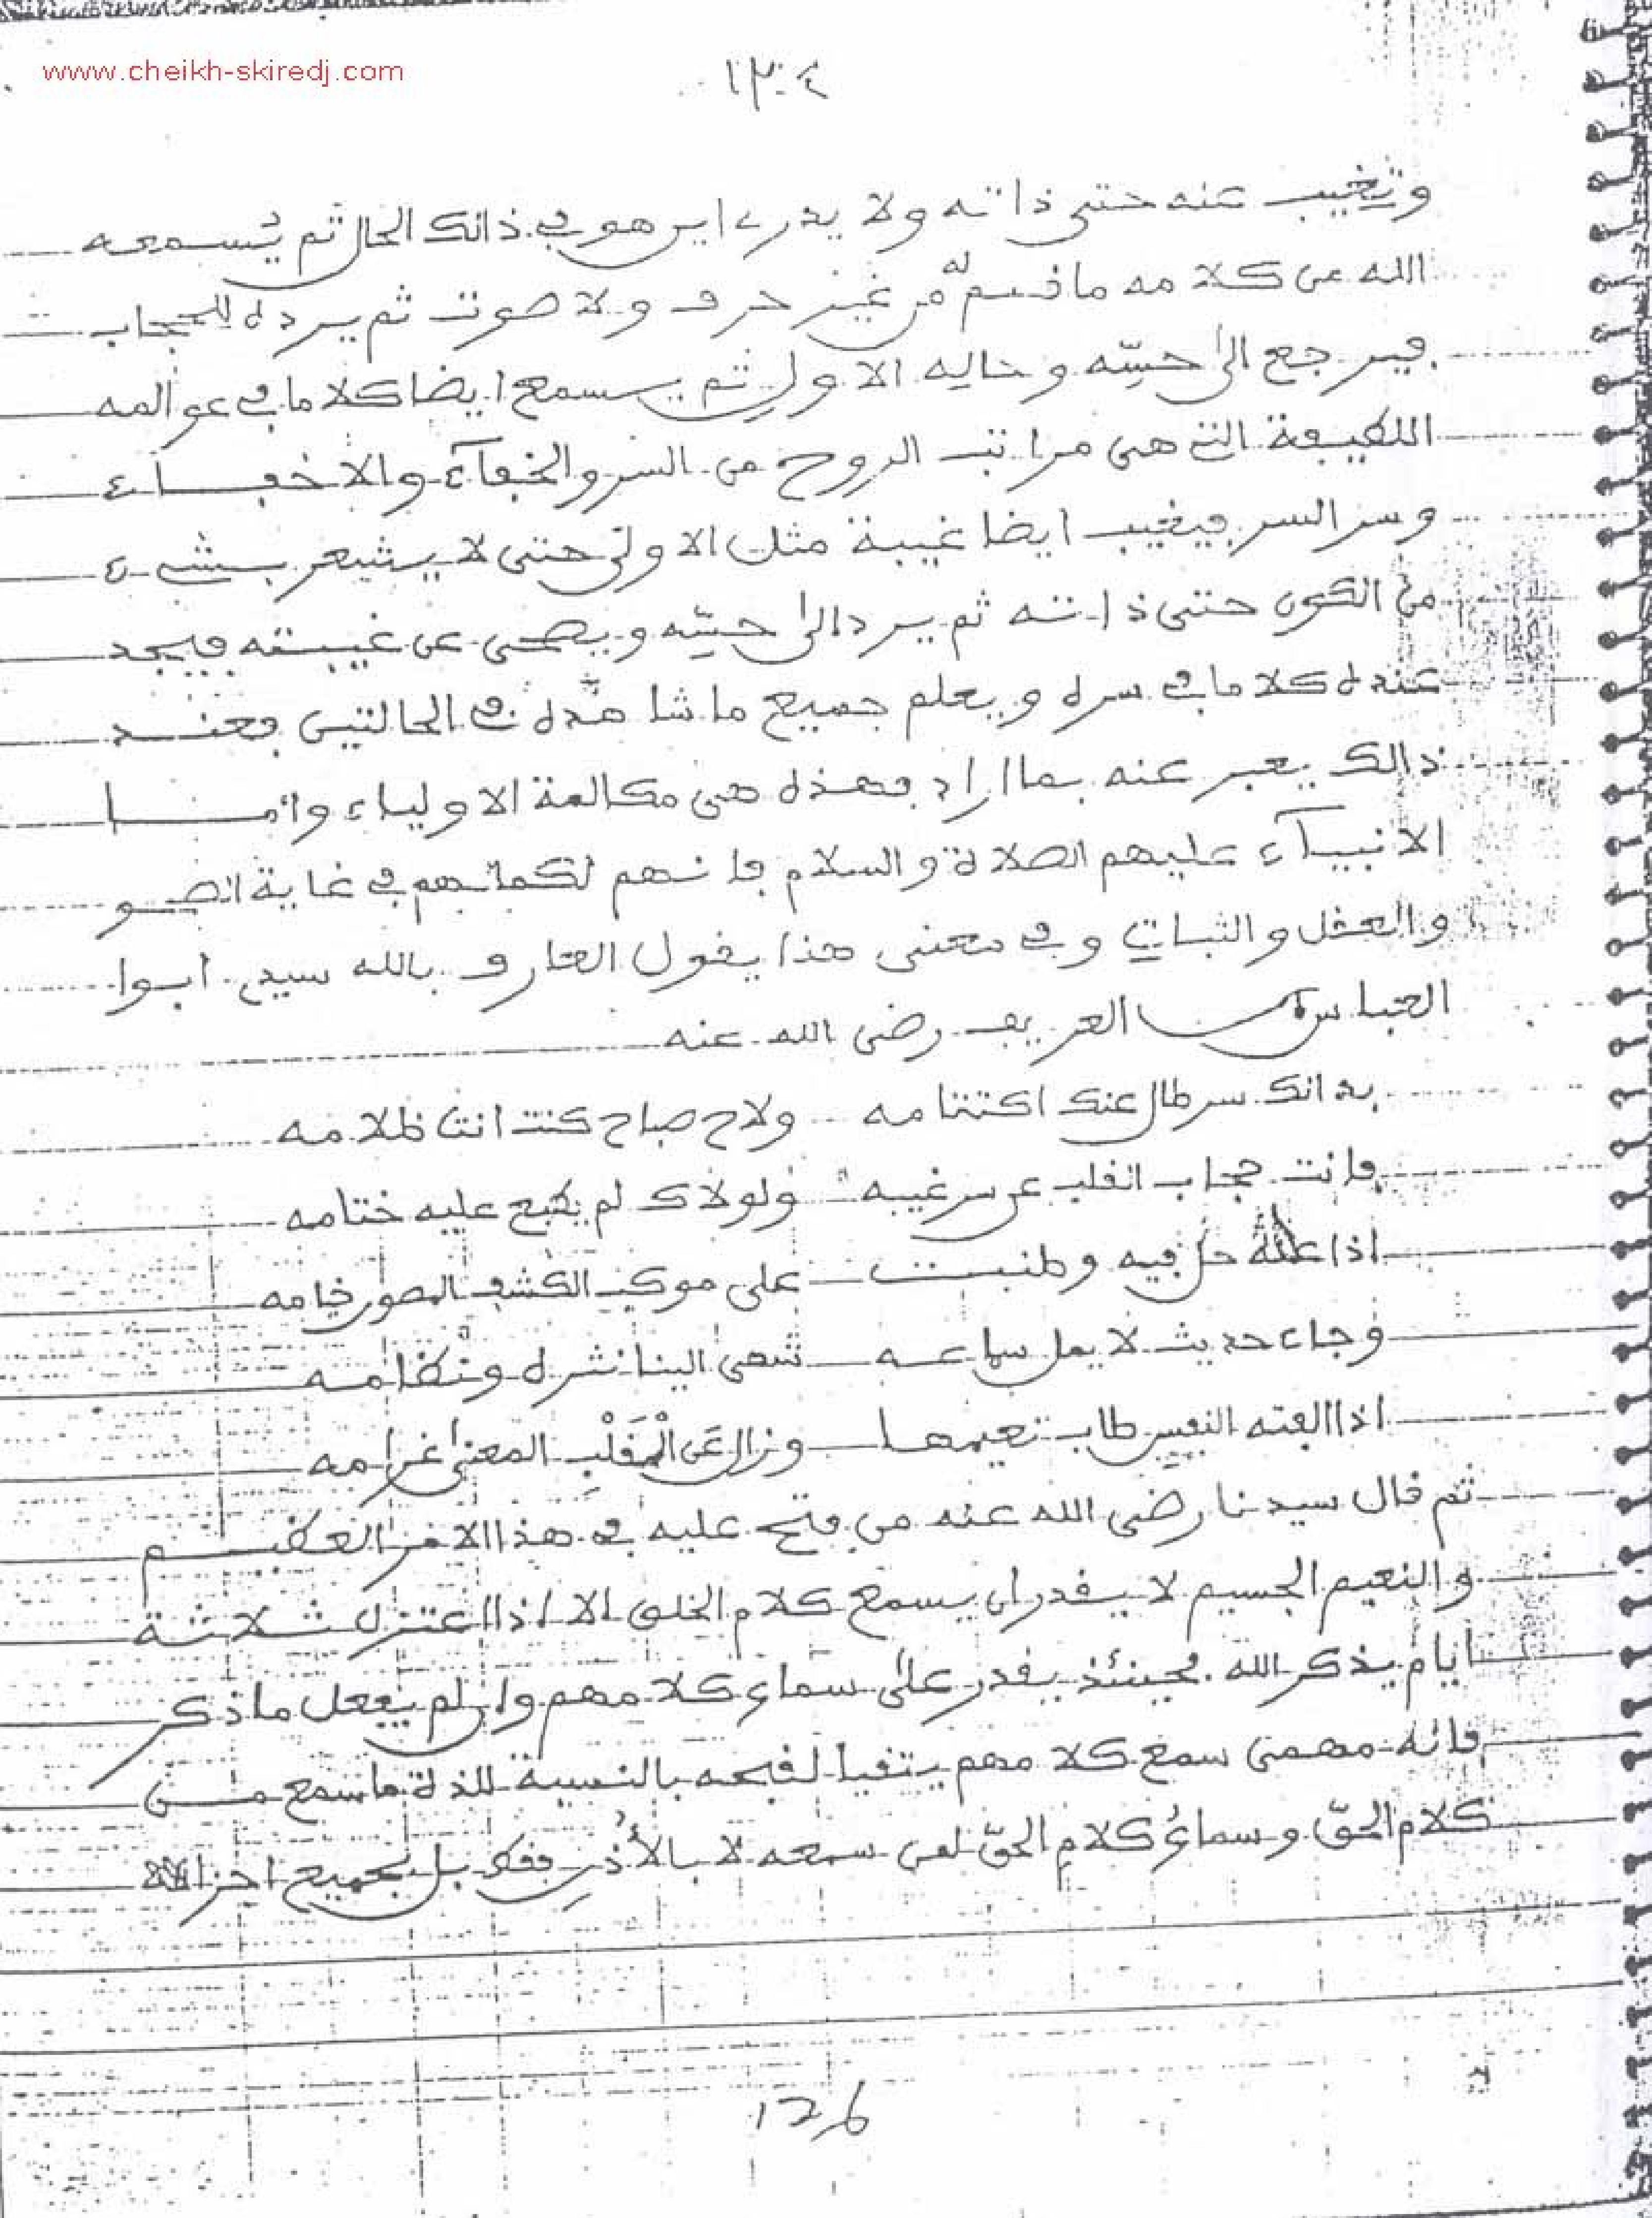 www.cheikh-skiredj.com
١٣٠٤
وتغيب عنه حتى ذاته ولا يدرى اين هو في ذالك الحال ثم يُسمعه
الله من كلامه ما قسم له من غير حرف ولا صوت ثم يرده للحجاب
فيرجع الى حسِّه وحاله الاول ثم يسمع ايضا كلاما في عوالمه
اللطيفة التي هي مراتب الروح من السر والخفآء والاخفاء
وسر السر فيغيب ايضا غيبة مثل الاولى حتى لا يشعر بشيء
من الكون حتى ذاته ثم يرد الى حسِّه ويصحى من غيبته فيجد
عنده كلاما في سره ويعلم جميع ما شاهده في الحالتين فعند
ذالك يعبر عنه بما اراد فهذه هي مكالمة الاولياء وأما
الانبيآء عليهم الصلاة والسلام فانهم لكمالهم في غاية الصحو
والعقل والثبات وفي معنى هذا يقول العارف بالله سيدي ابوا
العباس العريف رضى الله عنه
بدا لك سر طال عنك اكتتامه ولاح صباح كنت انت ظلامه
فانت حجاب القلب عن سر غيبه ولولاك لم يطبع عليه ختامه
اذا حل فيه وطنبت على موكب الكشف المصون خيامه
وجاء حديث لا يمل سماعه شهى الينا نثره ونظامه
اذا الفته النفس طاب نعيمها وزال عَن الْقَلْبِ المعنى غرامه
ثم قال سيدنا رضى الله عنه من فتح عليه في هذا الامر العظيم
والنعيم الجسيم لا يقدر ان يسمع كلام الخلق الا اذا اعتزل ثلاثة
ايام يذكر الله فحينئذ يقدر على سماع كلامهم وان لم يفعل ما ذكر
فانه مهمى سمع كلامهم يتقيا لقبحه بالنسبة للذة ما سمع من
كلام الحقّ وسماعُ كلامِ الحقّ لمن سمعه لا بالأذن فقط بل بجميع اجزائه
126